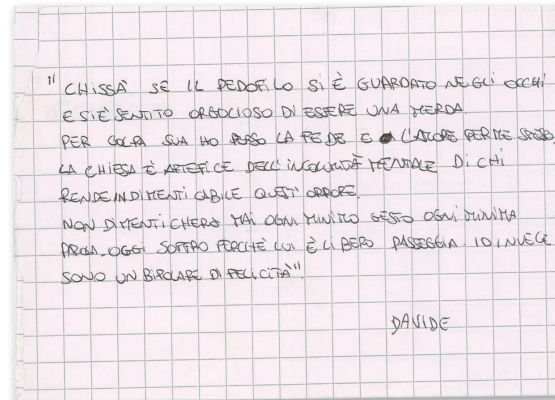 "CHISSÀ SE IL PEDOFILO SI È GUARDATO NEGLI OCCHI
E SI È SENTITO ORGOGLIOSO DI ESSERE UNA MERDA.
PER COLPA SUA HO PERSO LA FEDE E L'AMORE PER ME STESSO.
LA CHIESA È ARTEFICE DELL'INCOLUMITÀ MENTALE DI CHI
RENDE INDIMENTICABILE QUEST'ORRORE.
NON DIMENTICHERÒ MAI OGNI MINIMO GESTO OGNI MINIMA
PAROLA. OGGI SOFFRO PERCHÈ LUI È LIBERO PASSEGGIA. IO INVECE
SONO UN BIPOLARE DI FELICITÀ".
DAVIDE